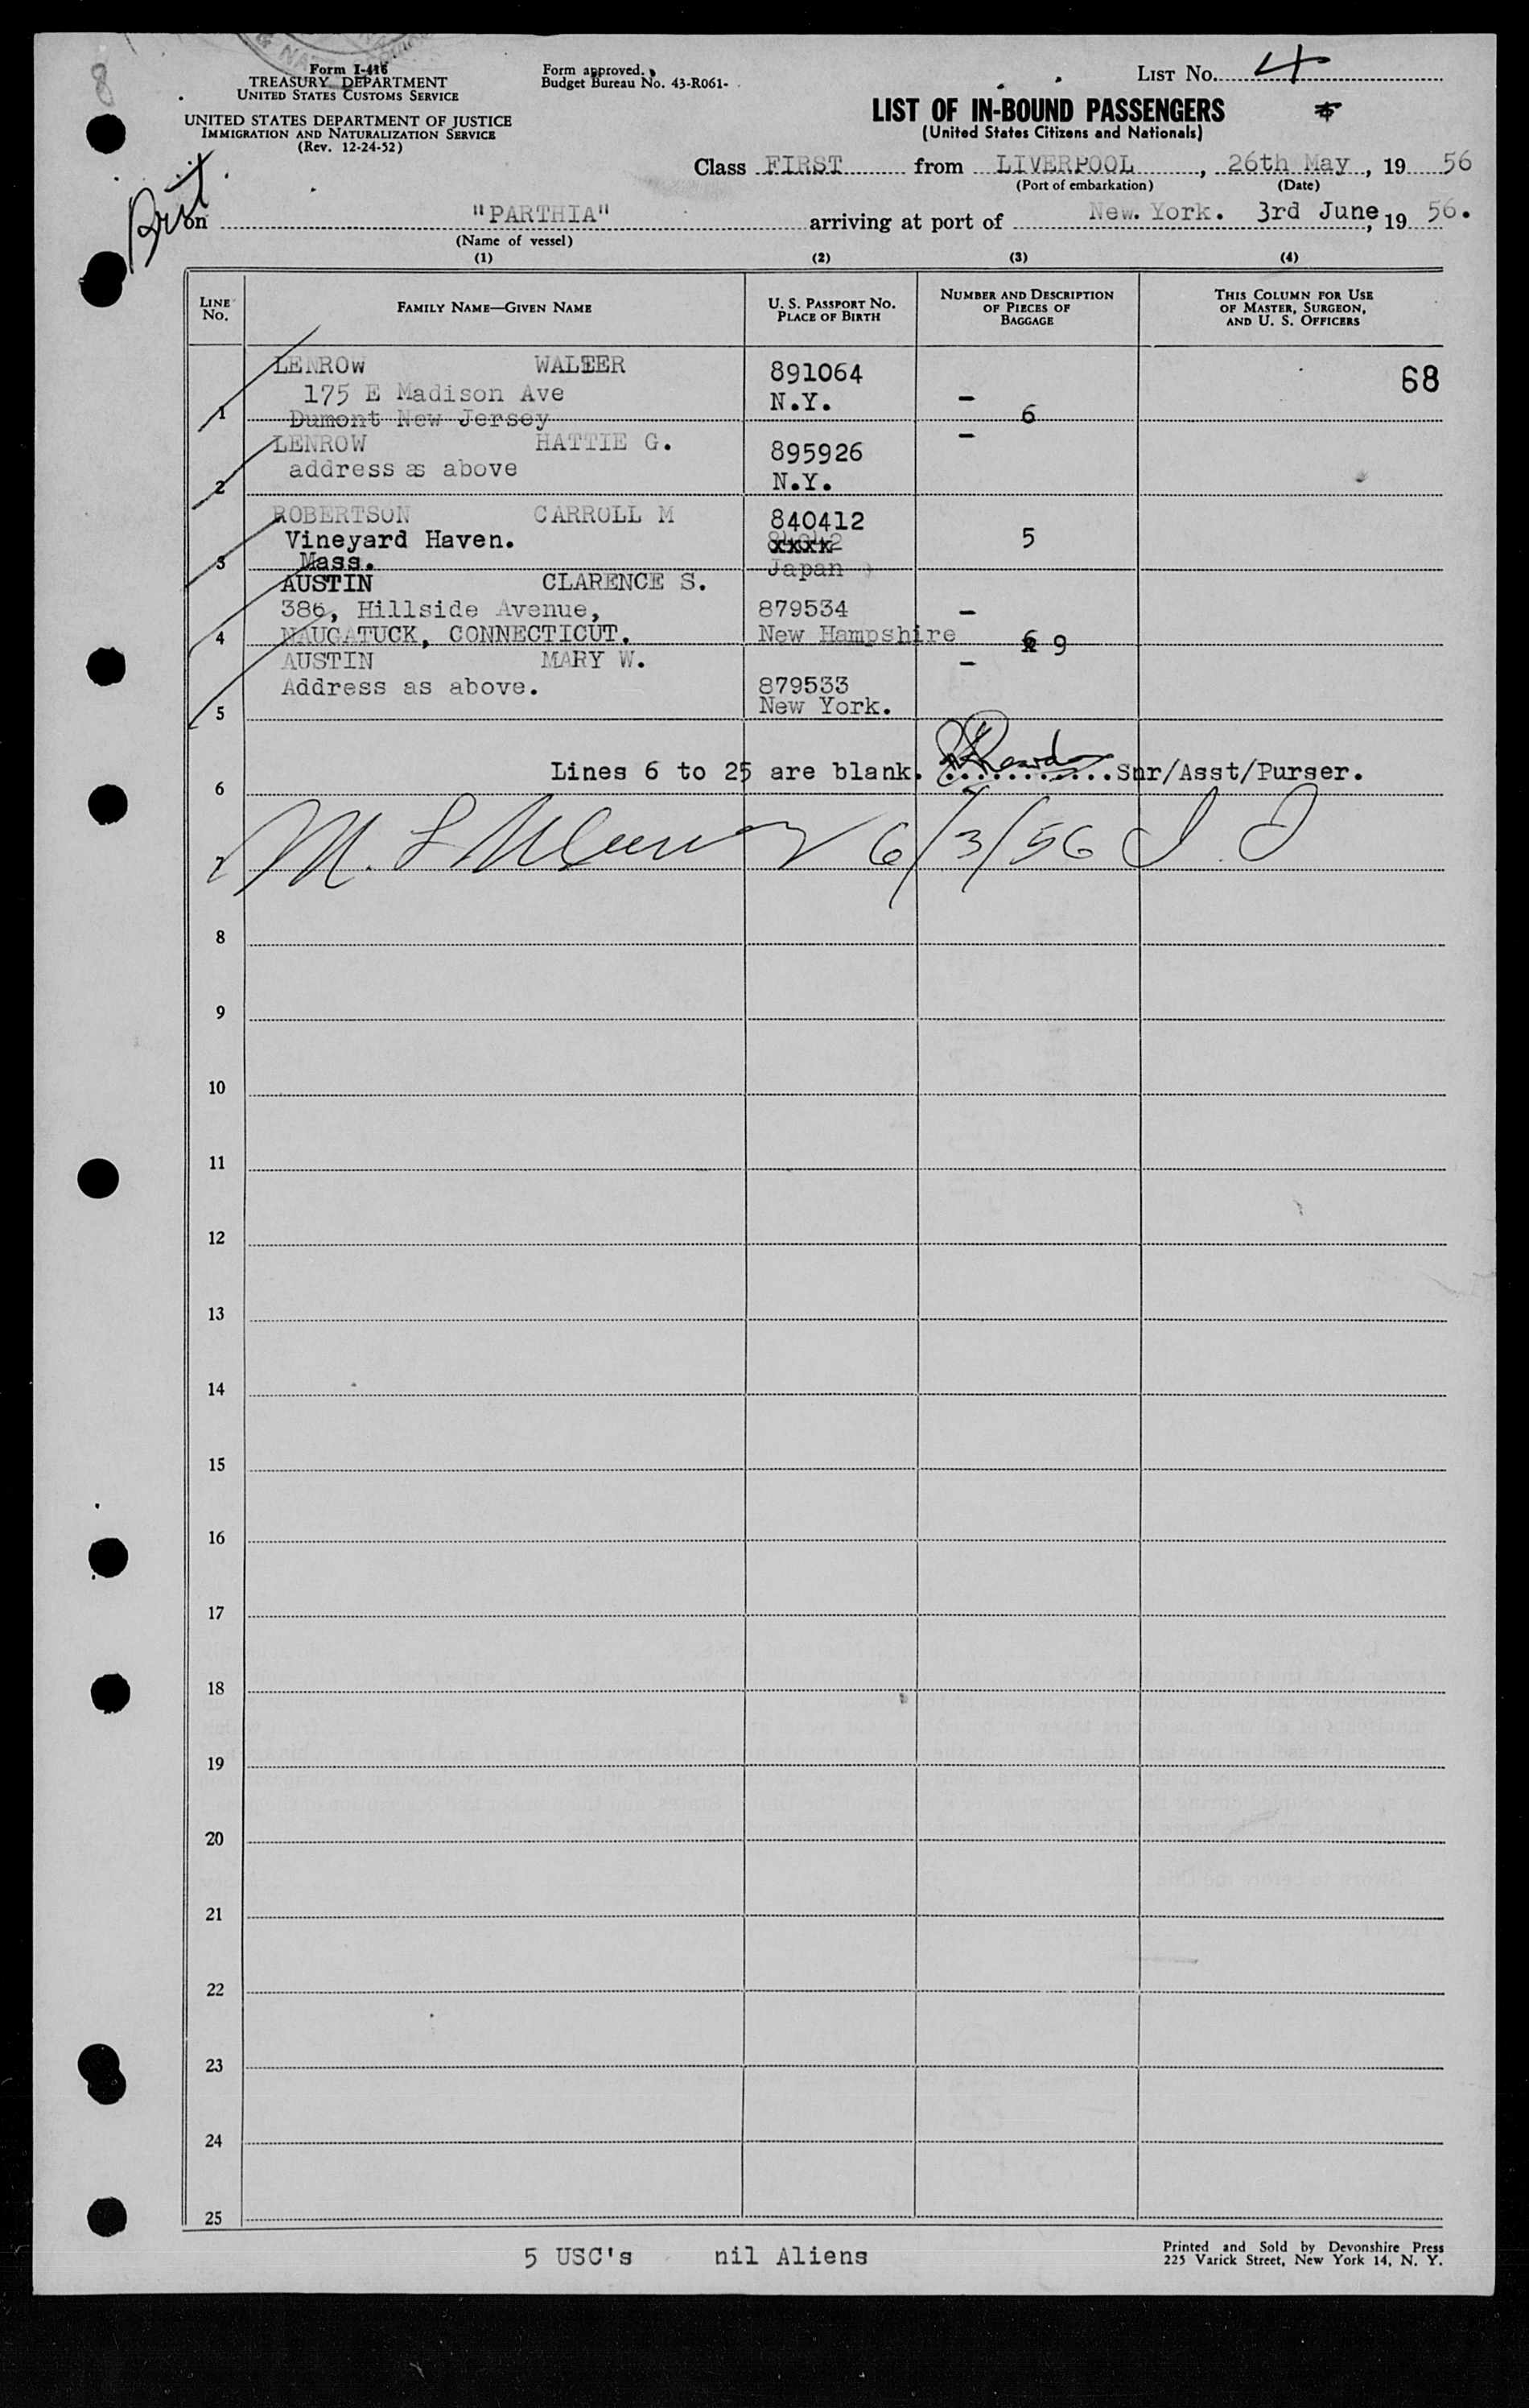 8
Form I-416
TREASURY DEPARTMENT
UNITED STATES CUSTOMS SERVICE
UNITED STATES DEPARTMENT OF JUSTICE
IMMIGRATION AND NATURALIZATION SERVICE
(Rev. 12-24-52)
Form approved.
Budget Bureau No. 43-R061-
LIST NO. 4
LIST OF IN-BOUND PASSENGERS
(United States Citizens and Nationals)
Class FIRST from LIVERPOOL, 26th May, 19 56
(Port of embarkation) (Date)
Brit
on "PARTHIA" arriving at port of New York. 3rd June, 19 56.
(Name of vessel)
(1) (2) (3) (4)
LINE NO. FAMILY NAME—GIVEN NAME U. S. PASSPORT NO. PLACE OF BIRTH NUMBER AND DESCRIPTION OF PIECES OF BAGGAGE THIS COLUMN FOR USE OF MASTER, SURGEON, AND U. S. OFFICERS
LENROW WALTER 891064 68
175 E Madison Ave N.Y. -
1 Dumont New Jersey 6
LENROW HATTIE G. 895926 -
address as above
2 N.Y.
ROBERTSON CARROLL M 840412
Vineyard Haven. xxxx 5
3 Mass. Japan
AUSTIN CLARENCE S.
386, Hillside Avenue, 879534 -
4 NAUGATUCK, CONNECTICUT. New Hampshire 9
AUSTIN MARY W. -
Address as above. 879533
5 New York.
Lines 6 to 25 are blank. ...........Snr/Asst/Purser.
6
7 6/3/56
8
9
10
11
12
13
14
15
16
17
18
19
20
21
22
23
24
25
5 USC's nil Aliens
Printed and Sold by Devonshire Press
225 Varick Street, New York 14, N. Y.